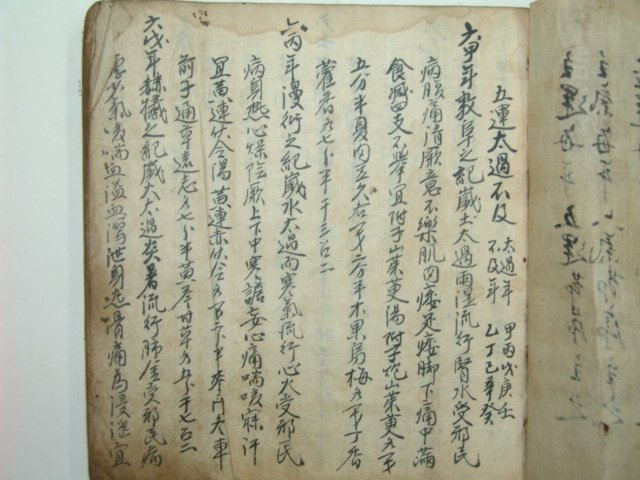 五運太過不及 太過年 甲丙戊庚壬
不及年 乙丁己辛癸
六甲年敦阜之紀歲土太過雨濕流行腎水受邪民
病腹痛清厥意不樂肌肉痿足痿脚下痛中滿
食減四支不擧宜附子山茱萸湯附子炮山茱萸各一戔
五分半夏肉豆久各一戔二分半木果烏梅各一戔丁香
藿香各七分半干三召二
六丙年漫衍之紀歲水太過而寒氣流行心火受邪民
病身熱心燥陰厥上下中寒譫妄心痛喘咳寢汗
宜黃連伏令湯黃連赤伏令各一戔二分半麥門冬車
前子通草遠志各七分半黃芩甘草各五分干七召二
六戊年赫曦之紀歲火太過炎暑流行肺金受邪民病
虐少氣咳喘血溢血瀉泄身熱骨痛爲浸淫宜